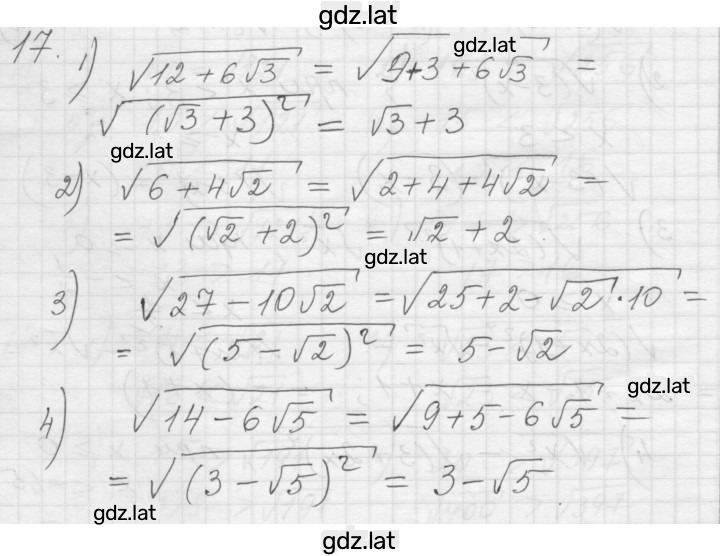 gdz.lat
17. 1) √(12 + 6√3) = √(9+3 + 6√3) =
gdz.lat
√((√3 + 3)²) = √3 + 3
gdz.lat
2) √(6 + 4√2) = √(2 + 4 + 4√2) =
= √((√2 + 2)²) = √2 + 2
gdz.lat
3) √(27 − 10√2) = √(25 + 2 − √2 · 10) =
= √((5 − √2)²) = 5 − √2
gdz.lat
4) √(14 − 6√5) = √(9 + 5 − 6√5) =
= √((3 − √5)²) = 3 − √5
gdz.lat
gdz.lat